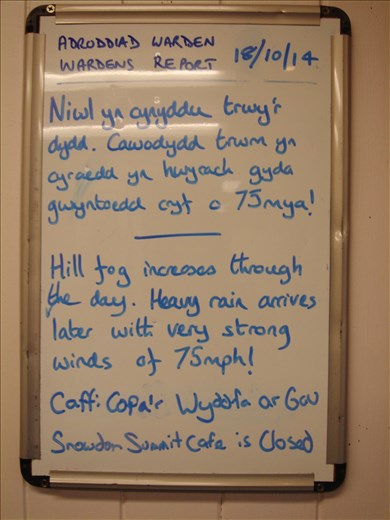 ADRODDIAD WARDEN
WARDENS REPORT 18/10/14
Niwl yn cynyddu trwy'r
dydd. Cawodydd trwm yn
cyraedd yn hwyrach gyda
gwyntoedd cryf o 75mya!
Hill fog increases through
the day. Heavy rain arrives
later with very strong
winds of 75mph!
Caffi Copa'r Wyddfa ar Gau
Snowdon Summit Cafe is Closed